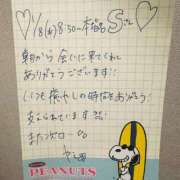 1/8(水)8:50〜本指名Sさん
朝から会いに来てくれて
ありがとうございます!!
いつも癒やしの時間をありがとう!
支えられています
また次回
PEANUTS